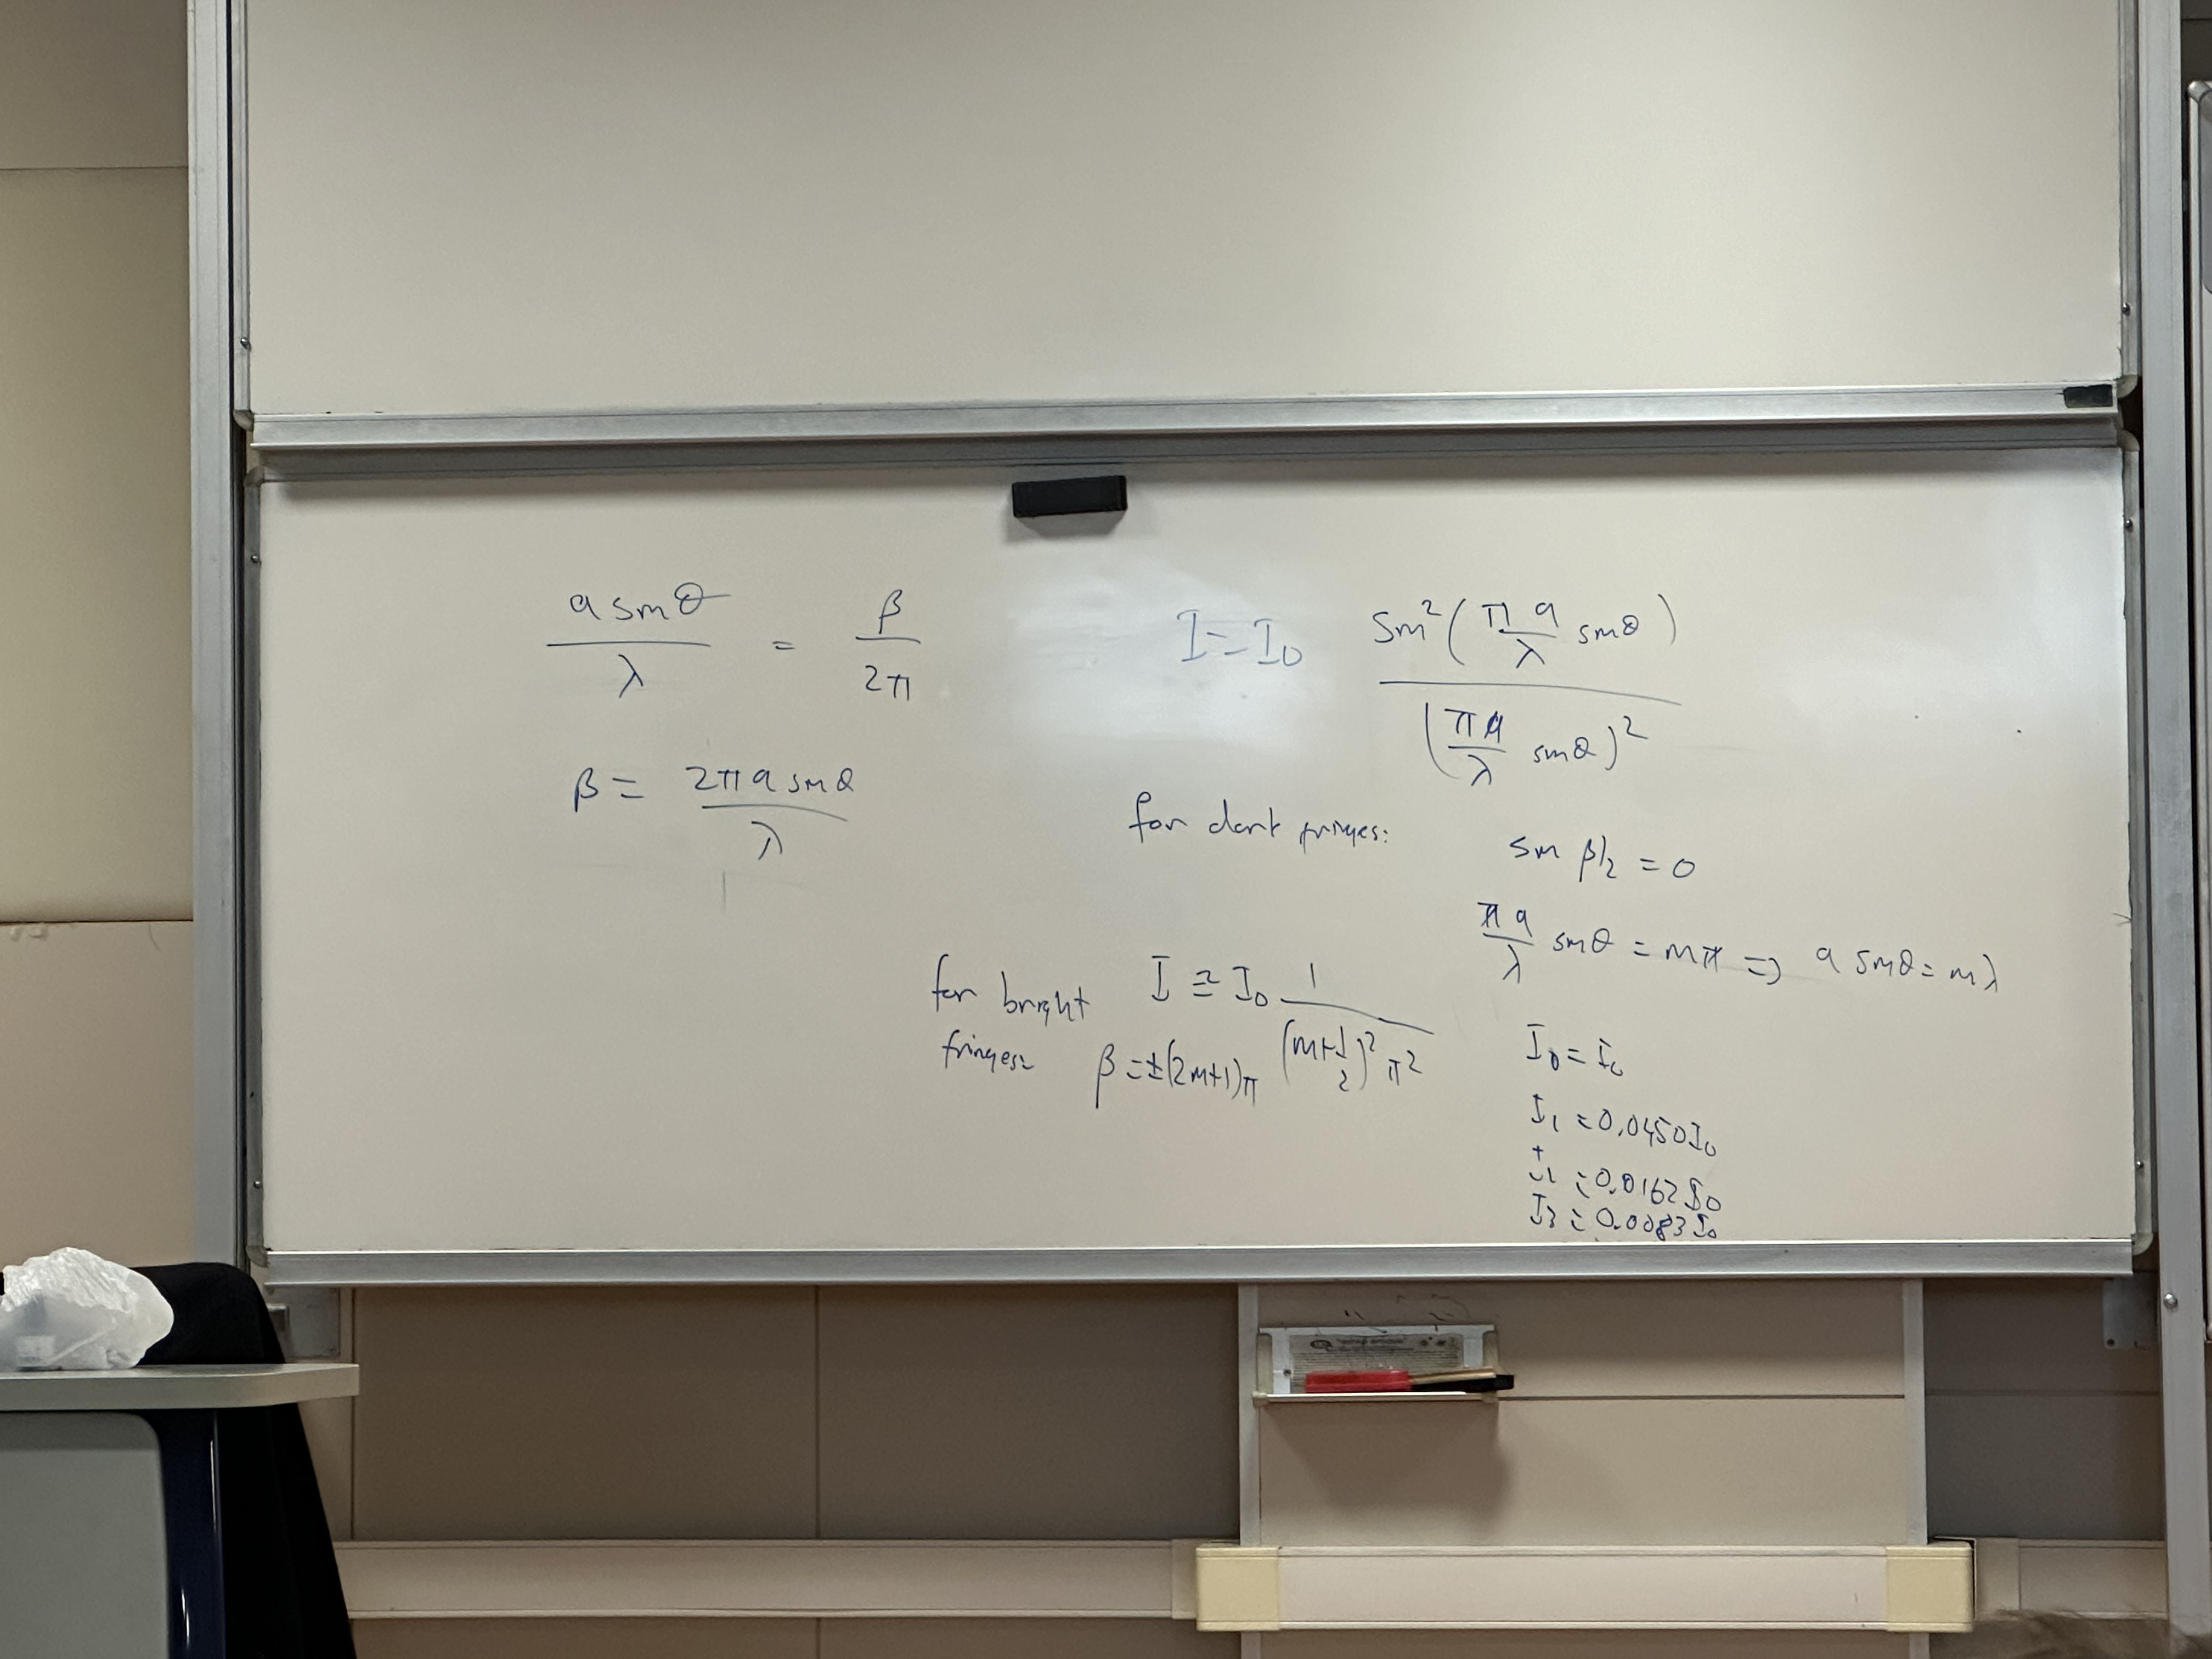 a sinθ / λ = β / 2π
β = 2πa sinθ / λ
I = I₀ sin²(πa/λ sinθ) / (πa/λ sinθ)²
for dark fringes:
sin β/2 = 0
πa/λ sinθ = mπ ⇒ a sinθ = mλ
for bright fringes:
I ≅ I₀ 1 / (m+1/2)²π²
β = ±(2m+1)π
I₀ = I₀
I₁ = 0.0450I₀
I₂ = 0.0162I₀
I₃ = 0.0083I₀